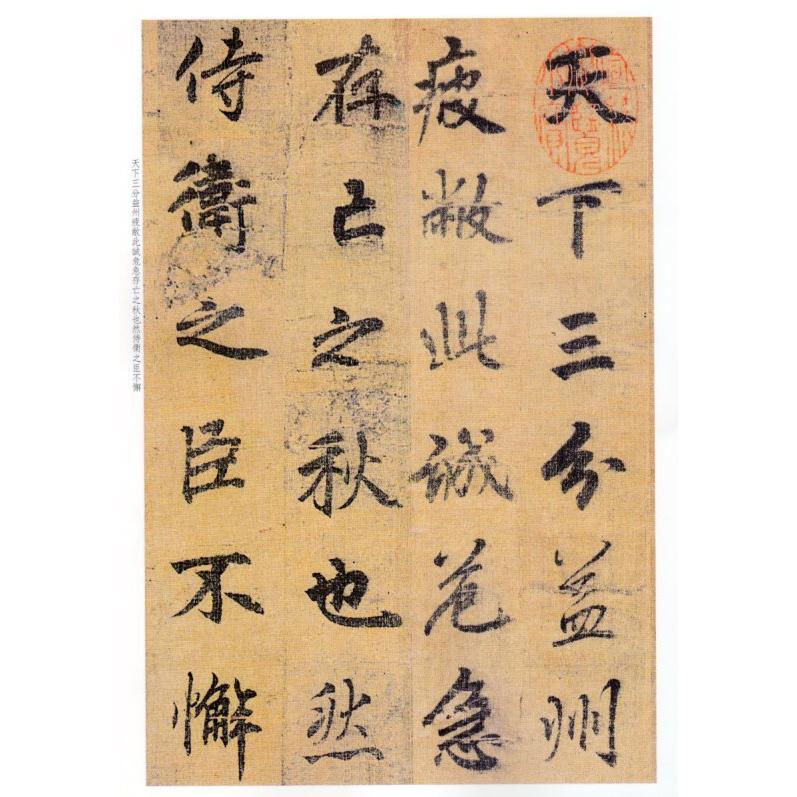 天下三分益州
疲敝此誠危急
存亡之秋也然
侍衛之臣不懈
天下三分益州疲敝此誠危急存亡之秋也然侍衛之臣不懈